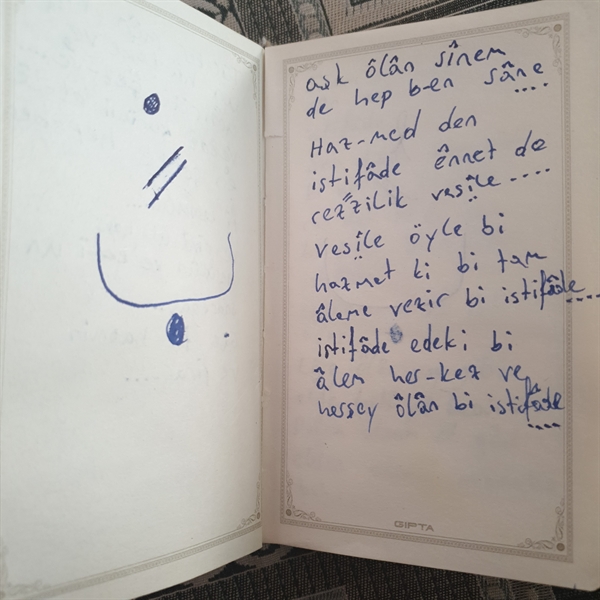 ب
aşk ôlân sînem
de hep b-en sâne
....
Haz-med den
istifâde ênnet de
cezzilik vesîle ....
vesîle öyle bi
hazmet ki bi tam
âleme vezir bi istifâde....
istifâde edeki bi
âlem her-kez ve
herşey ôlân bi istifâde
....
GIPTA